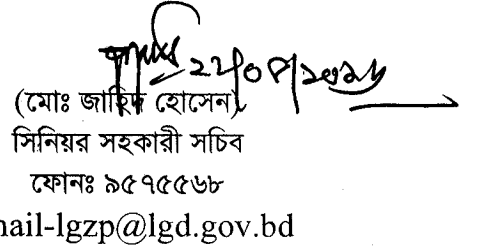 (মোঃ জাহিদ হোসেন)
সিনিয়র সহকারী সচিব
ফোনঃ ৯৫৭৫৫৬৮
nail-lgzp@lgd.gov.bd